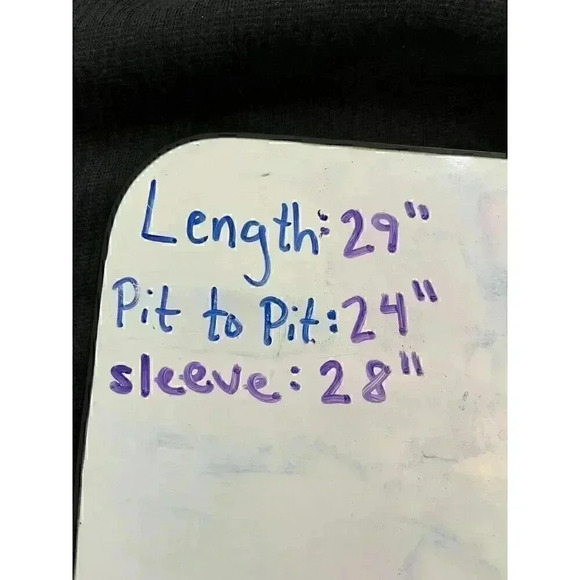 Length: 29"
Pit to Pit: 24"
sleeve: 28"